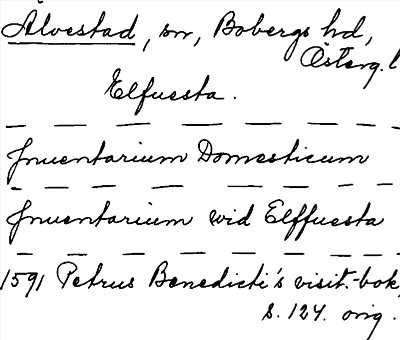 Alvestad, sn, Bobergs hd,
Österg. l
Elfuesta.
Jnuentarium Domesticum
Jnuentarium wid Elffuesta
1591 Petrus Benedicti's visit.-bok,
s. 124. orig.